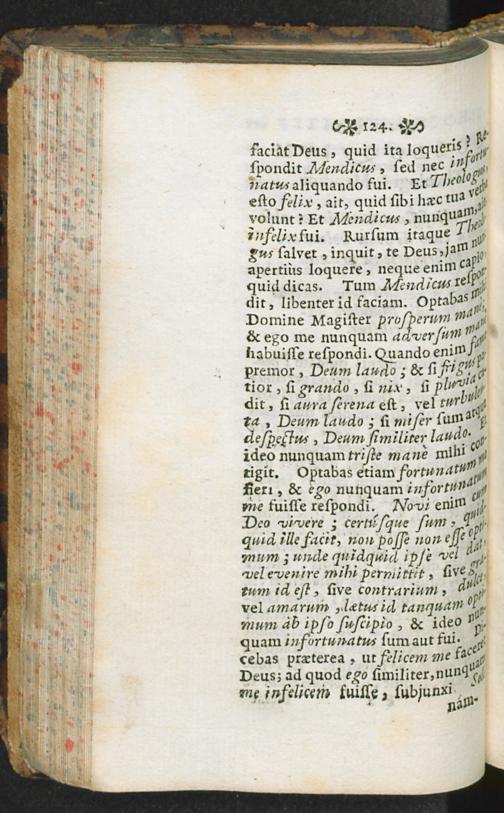 124.
faciat Deus, quid ita loqueris? Re-
spondit Mendicus, sed nec infortu-
natus aliquando fui. Et Theologus,
esto felix, ait, quid sibi hæc tua verba
volunt? Et Mendicus, nunquam, ait,
infelix fui. Rursum itaque Theolo-
gus salvet, inquit, te Deus, jam nunc
apertiùs loquere, neque enim capio,
quid dicas. Tum Mendicus respon-
dit, libenter id faciam. Optabas mihi
Domine Magister prosperum mane,
& ego me nunquam adversum mane
habuisse respondi. Quando enim fame
premor, Deum laudo; & si frigus pa-
tior, si grando, si nix, si pluvia ca-
dit, si aura serena est, vel turbulen-
ta, Deum laudo; si miser sum atque
despectus, Deum similiter laudo. Et
ideo nunquam triste manè mihi con-
tigit. Optabas etiam fortunatum me
fieri, & ego nunquam infortunatum
me fuisse respondi. Novi enim cum
Deo vivere; certúsque sum, quid-
quid ille facit, non posse non esse opti-
mum; unde quidquid ipse vel dat,
vel evenire mihi permittit, sive gra-
tum id est, sive contrarium, dulce
vel amarum, lætus id tanquam opti-
mum ab ipso suscipio, & ideo nun-
quam infortunatus sum aut fui. Di-
cebas præterea, ut felicem me faceret
Deus; ad quod ego similiter, nunquam
me infelicem fuisse, subjunxi. Solú
nám-